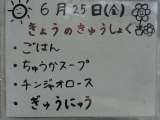 6月25日(金)
きょうのきゅうしょく
・ごはん
・ちゅうかスープ
・チンジャオロース
・ぎゅうにゅう